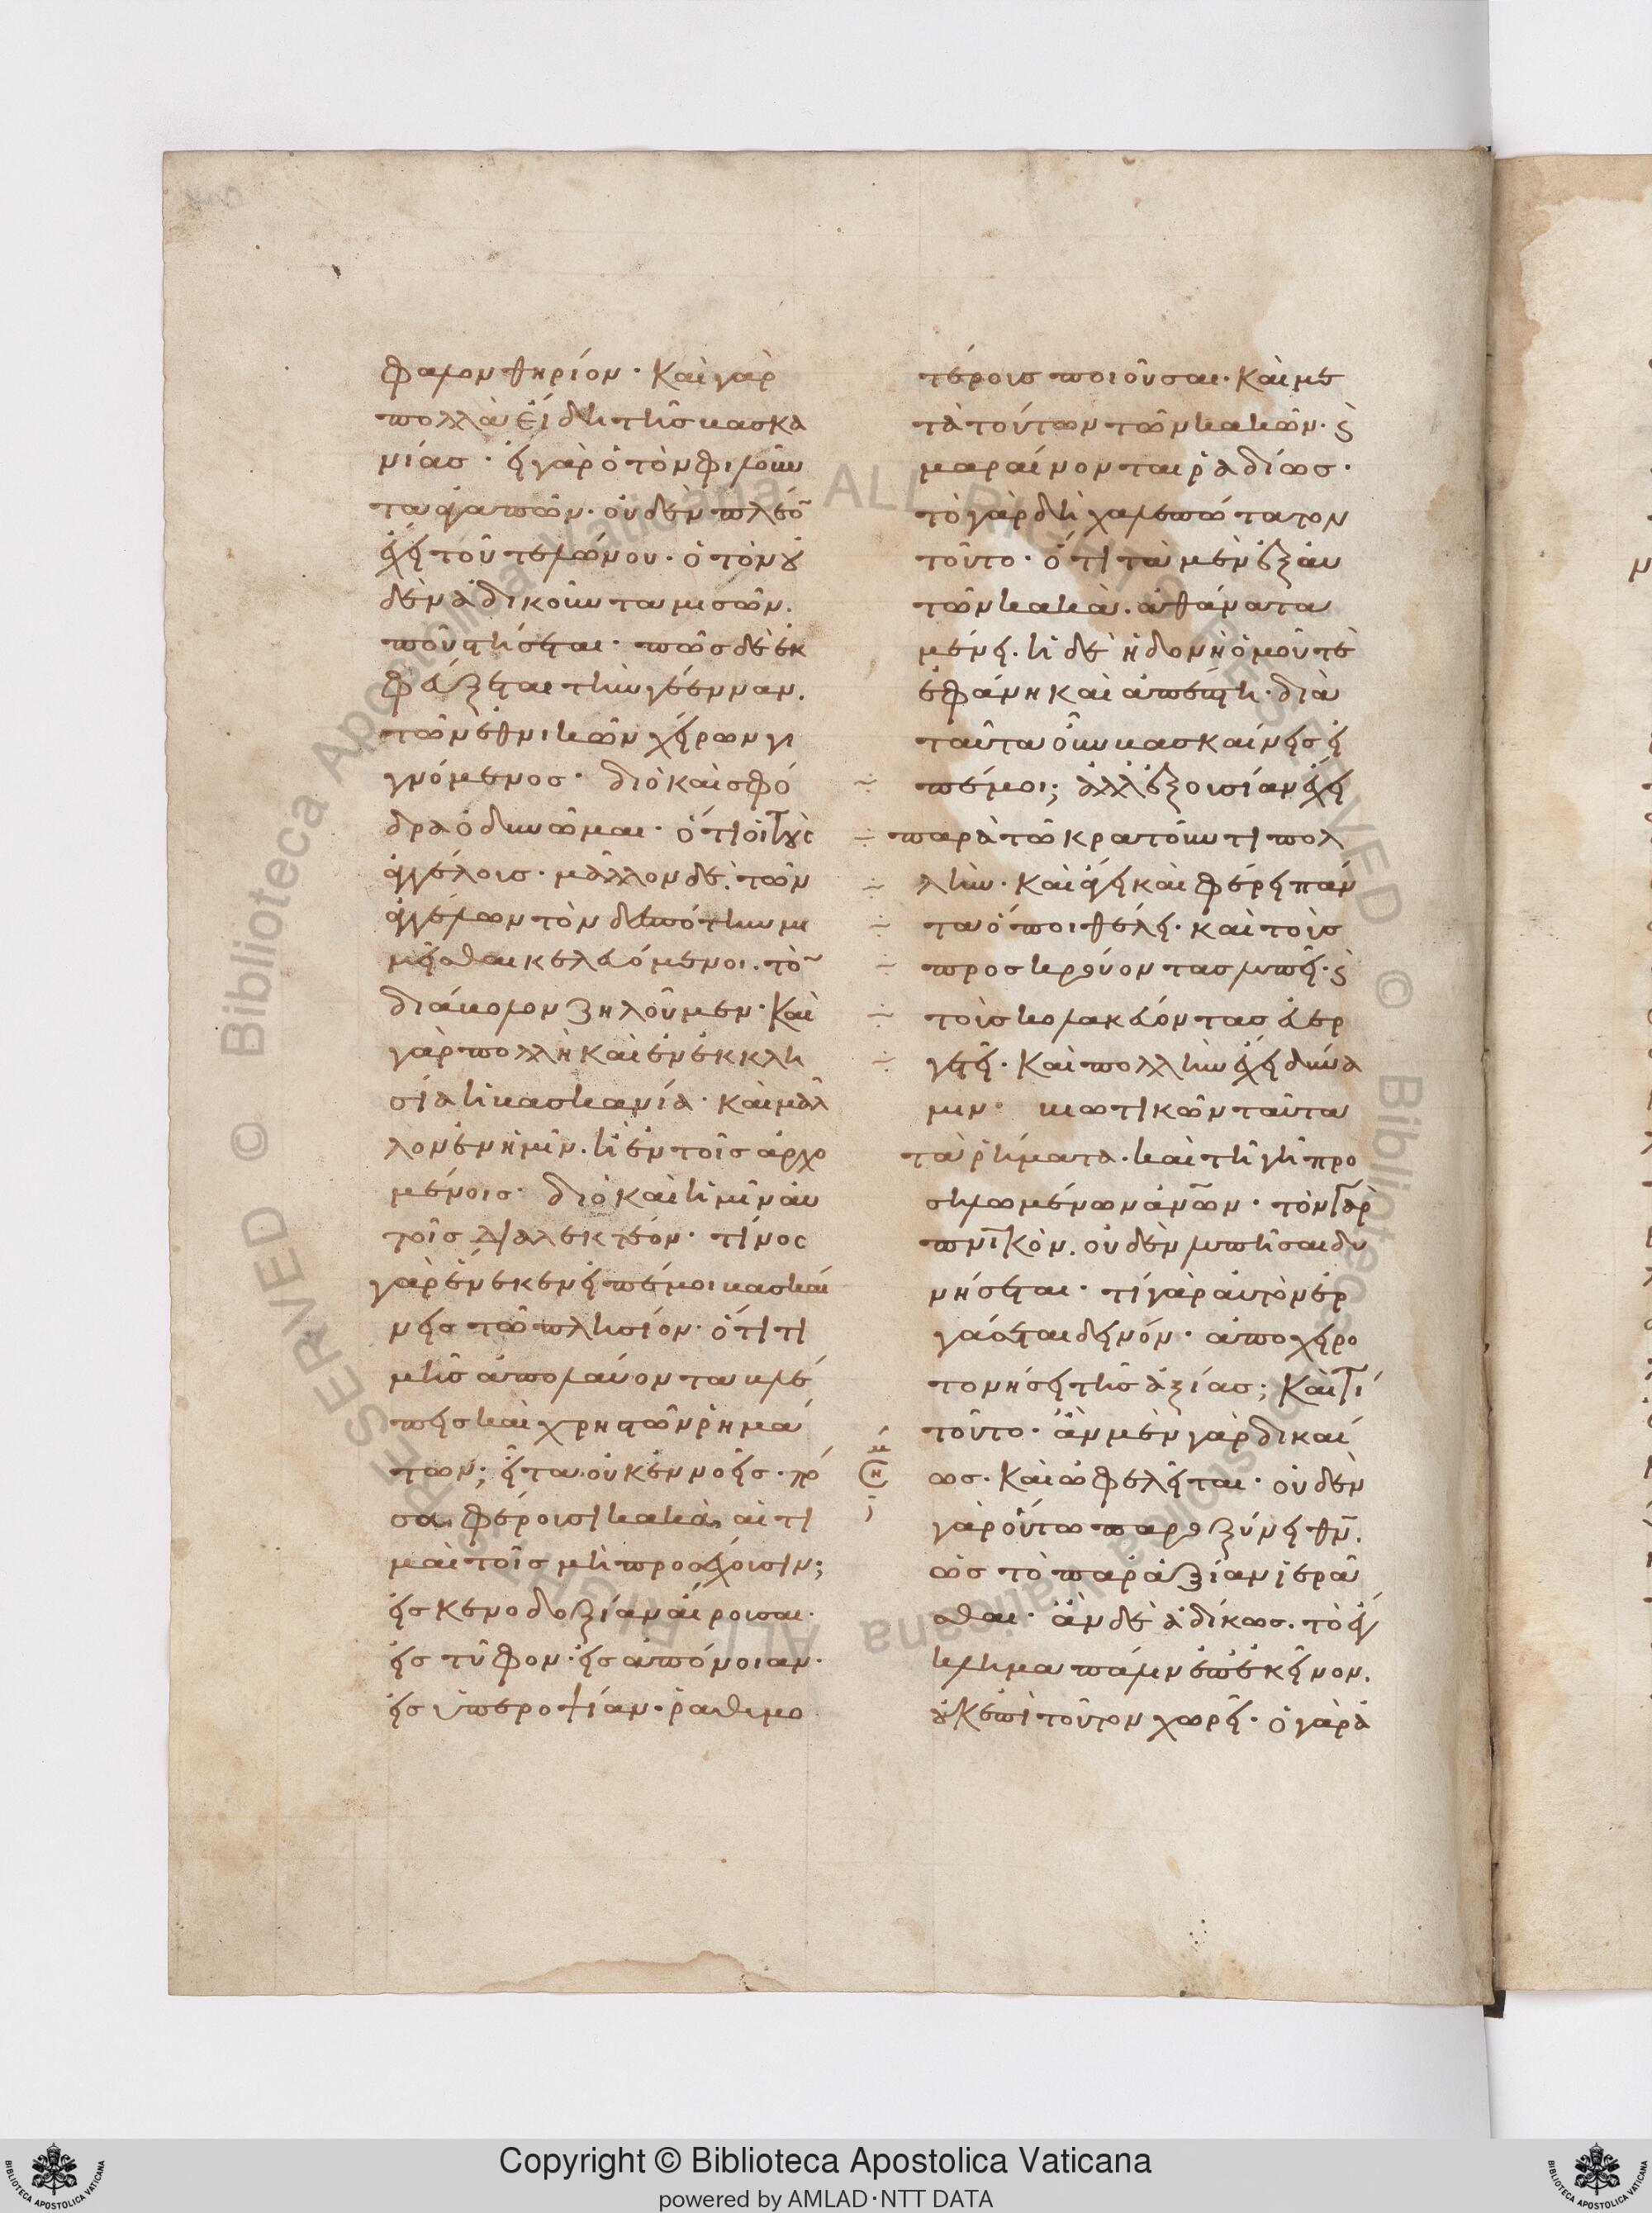 φαλον θηρίον· Και γὰρ
πολλὰ εἴδη τῆς βασκα
νίας· εἰ γὰρ ὁ τὸν φιλοῦν
τα ἀγαπῶν· οὐδὲν πλέο̄
ἔχει τοῦ τελώνου· ὁ τὸν ου
δὲν ἀδικοῦντα μισῶν.
ποῦ στήσεται· πῶς δὲ ἐκ
φεύξεται τὴν γέενναν.
τῶν ἐθνικῶν χείρων γι
γνόμενος· διὸ καὶ σφό
δρα ὀδυνῶμαι· ὅτι οἱ τοὺς
ἀγγέλους· μᾶλλον δὲ, τῶν
ἀγγέλων τὸν δεσπότην μι
μεῖσθαι κελευόμενοι. τὸ̄
διάβολον ζηλοῦμεν· Καὶ
γὰρ πολλὴ καὶ ἐν ἐκκλη
σία ἡ βασκανία· καὶ μᾶλ
λον ἐν ἡμῖν. ἢ ἐν τοῖς ἀρχο
μένοις· διὸ καὶ ἡμῖν αὐ
τοῖς διαλεκτέον· τίνος
γὰρ ἕνεκεν εἰπέ μοι βασκαί
νεις τῶ πλησίον· ὅτι τι
μῆς ἀπολαύοντα βλέ
πεις καὶ χρηστῶν ρημά
των; εἶτα οὐκ ἐννοεῖς· πό
σα φέρουσι κακὰ, αἱ τι
μαὶ τοῖς μὴ προσέχουσιν;
εἰς κενοδοξίαν αἴρουσαι·
εἰς τῦφον· εἰς ἀπόνοιαν·
εἰς ὑπεροψίαν· ραθυμο
τέρους ποιοῦσαι· Καὶ με
τὰ τούτων τῶν κακῶν· ϛ̀
μαραίνονται ῥαδίως·
τὸ γὰρ δὴ χαλεπώτατον
τοῦτο· ὅτι τὰ μὲν ἐξ αὐ
τῶν κακὰ. ἀθάνατα
μένει. ἡ δὲ ἡδονὴ ὁμοῦ τὲ
ἐφάνη καὶ ἀπέπτη· διὰ
ταῦτα οὖν βασκαίνεις εἰ
πέ μοι; ἀλλ' ἐξουσίαν ἔχει
παρὰ τῶ κρατοῦντι πολ
λὴν· Καὶ ἄγει καὶ φέρει πάν
τα ὅποι θέλει· καὶ τοὺς
προσκρούοντας λυπεῖ· ϛ̀
τοὺς κολακεύοντας εὐερ
γετεῖ· Καὶ πολλὴν ἔχει δύνα
μιν· βιωτικῶν ταῦτα
τὰ ῥήματα· καὶ τῆ γῆ προ
σηλωμένων ἀν̅ων· τὸν γὰρ
πν̅ικὸν. οὐδὲν λυπῆσαι δυ
νήσεται· τί γὰρ αὐτὸν ἐρ
γάσεται δεινόν· ἀποχειρο
τονήσει τῆς ἀξίας; Καὶ τί
τοῦτο· ἂν μὲν γὰρ δικαί
ως. Καὶ ὠφελεῖται· οὐδὲν
γὰρ οὕτω παροξύνει θν̅.
ὡς τὸ παρ' ἀξίαν ἱερᾶ
σθαι· ἂν δὲ ἀδίκως. τὸ ἔγ
κλημα πάλιν ἐπ' ἐκεῖνον.
οὐκ ἐπὶ τοῦτον χωρεῖ· ὁ γὰρ ἀ